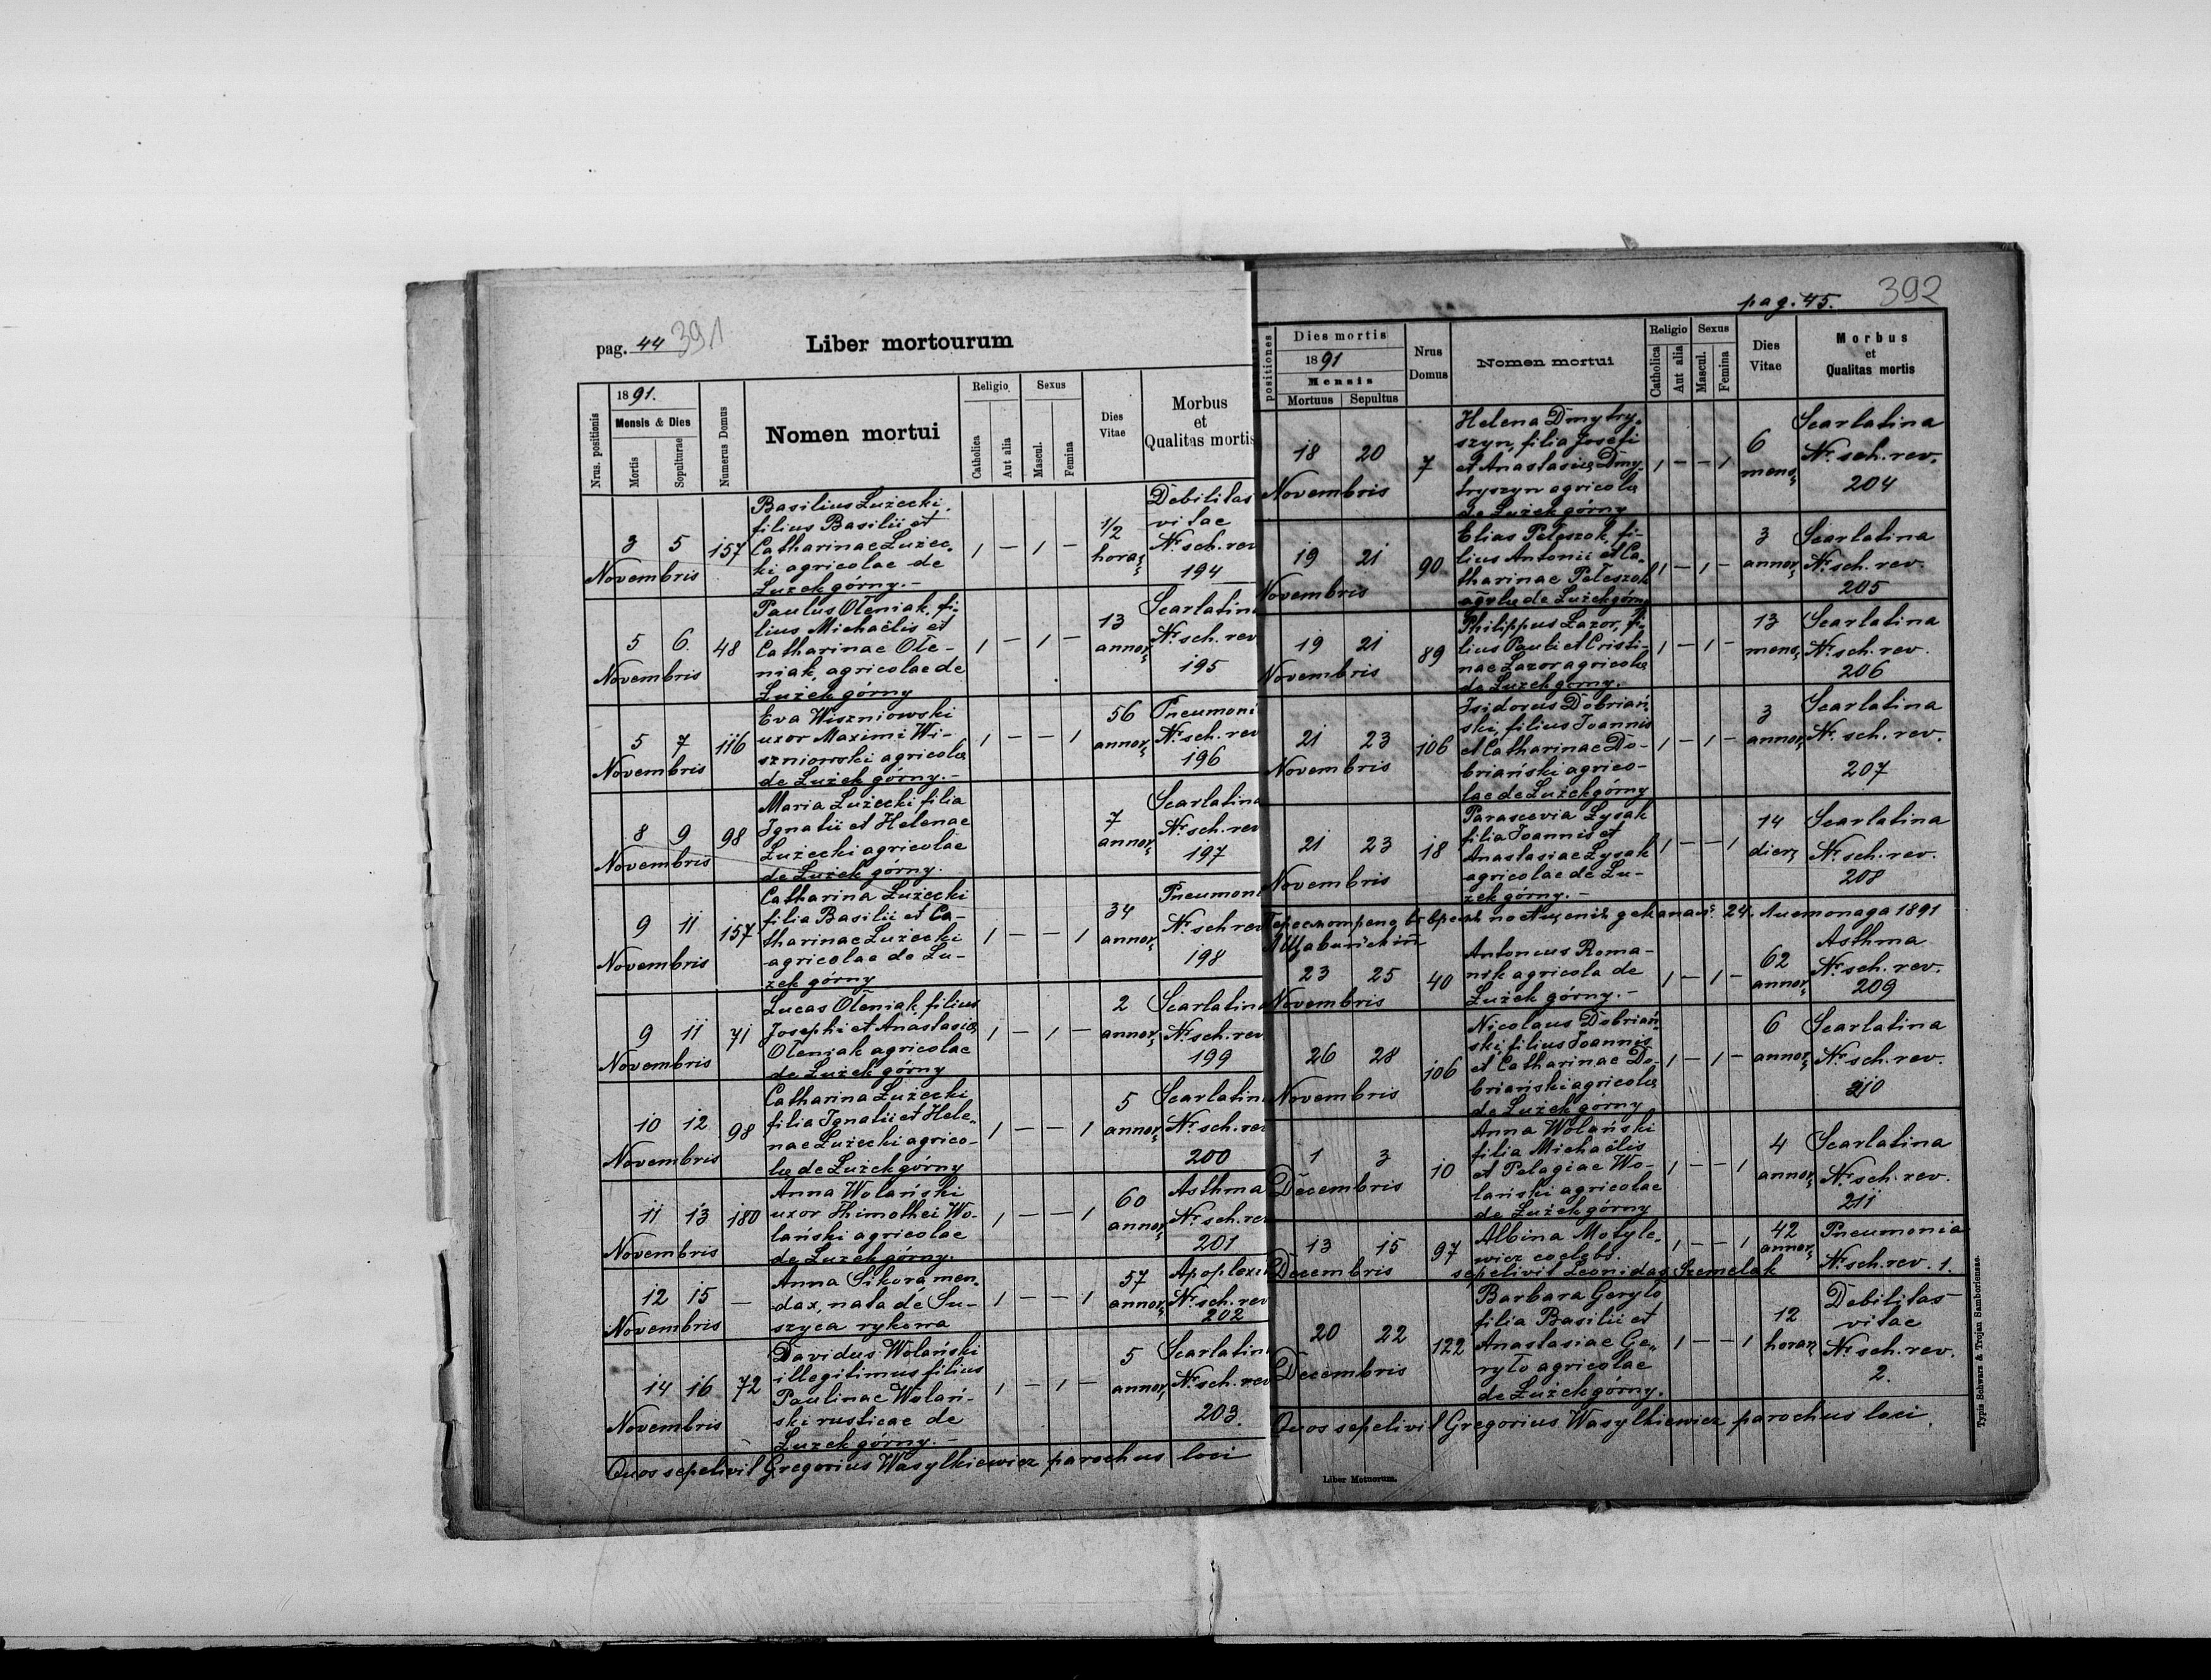 pag. 44 391
Liber mortourum
Nrus. positionis
1891.
Mensis & Dies
Mortis
Sepulturae
Numerus Domus
Nomen mortui
Religio
Catholica
Aut alia
Sexus
Mascul.
Femina
Dies
Vitae
Morbus
et
Qualitas mortis
3 5 Novembris 157
Basilius Łużecki,
filius Basilii et
Catharinae Łużec-
ki agricolae de
Łużek górny.-
1 — 1 —
1/2
horae
Debilitas
vitae
Nr. sch. rev
194
5 6. Novembris 48
Paulus Ołeniak, fi-
lius Michaëlis et
Catharinae Ołe-
niak, agricolae de
Łużek górny
1 — 1 —
13
annor.
Scarlatin
Nr. sch. rev
195
5 7 Novembris 116
Eva Wiszniowski
uxor Maximi Wi-
szniowski agricolae
de Łużek górny.-
1 — — 1
56
annor.
Pneumoni
Nr. sch. rev
196
8 9 Novembris 98
Maria Łużecki filia
Ignatii et Helenae
Łużecki agricolae
de Łużek górny.
7
annor.
Scarlatina
Nr. sch. rev
197
9 11 Novembris 157
Catharina Łużecki
filia Basilii et Ca-
tharinae Łużecki
agricolae de Łu-
żek górny
1 — — 1
34
annor.
Pneumoni
Nr. sch rev
198
9 11 Novembris 71
Lucas Ołeniak, filius
Josephi et Anastasiae
Ołeniak agricolae
de Łużek górny
1 — 1 —
2
annor.
Scarlatina
Nr. sch. rev.
199
10 12 Novembris 98
Catharina Łużecki
filia Ignatii et Hele-
nae Łużecki agrico-
lae de Łużek górny
1 — — 1
5
annor.
Scarlatin
Nr. sch. rev
200
11 13 Novembris 180
Anna Wolański
uxor Thimothei Wo-
lański agricolae
de Łużek górny.
1 — — 1
60
annor.
Asthma
Nr. sch. rev
201
12 15 Novembris —
Anna Sikora men-
dax, nata de Su-
szyca rykowa
1 — — 1
57
annor.
Apoplexi
Nr. sch. rev
202
14 16 Novembris 72
Davidus Wolański
illegitimus filius
Paulinae Wolań-
ski rusticae de
Łużek górny.-
1 — 1 —
5
annor.
Scarlatin
Nr. sch. rev
203.
Quos sepelivit Gregorius Wasylkiewicz parochus loci
pag. 45. 392
positiones
Dies mortis
1891
Mensis
Mortuus
Sepultus
Nrus
Domus
Nomen mortui
Religio
Catholica
Aut alia
Sexus
Mascul.
Femina
Dies
Vitae
Morbus
et
Qualitas mortis
18 20 Novembris 7
Helena Dmytry-
szyn, filia Josefi
et Anastasiae Dmy-
tryszyn agricolae
de Łużek górny
1 — — 1
6
mens.
Scarlatina
Nr. sch. rev.
204
19 21 Novembris 90
Elias Pełeszok, fi-
lius Antonii et Ca-
tharinae Pełeszok
agrlae de Łużek górny
1 — 1 —
3
annor.
Scarlatina
Nr. sch. rev.
205
19 21 Novembris 89
Philippus Łazor, fi-
lius Pauli et Cristi-
nae Łazor agricolae
de Łużek górny.
1 — 1 —
13
mens.
Scarlatina
Nr. sch. rev.
206
21 23 Novembris 106
Isidorus Dobriań-
ski, filius Joannis
et Catharinae Do-
briański agrico-
lae de Łużek górny
1 — 1 —
3
annor.
Scarlatina
Nr. sch. rev.
207
21 23 Novembris 18
Parascevia Łysak
filia Joannis et
Anastasiae Łysak
agricolae de Łu-
żek górny.-
1 — — 1
14
dier.
Scarlatina
Nr. sch. rev.
208
24. Листопада 1891
23 25 Novembris 40
Antonius Roma-
nik agricola de
Łużek górny.-
1 — 1 —
62
annor.
Asthma
Nr. sch. rev.
209
26 28 Novembris 106
Nicolaus Dobriań-
ski filius Joannis
et Catharinae Do-
briański agricolae
de Łużek górny
1 — 1 —
6
annor.
Scarlatina
Nr. sch. rev.
210
1 3 Decembris 10
Anna Wolański
filia Michaëlis
et Pelagiae Wo-
lański agricolae
de Łużek górny
1 — — 1
4
annor.
Scarlatina
Nr. sch. rev.
211
13 15 Decembris 97
Albina Motyle-
wicz coelebs.
sepelivit Leonidas Szemelak
1 — — 1
42
annor.
Pneumonia
Nr. sch. rev. 1.
20 22 Decembris 122
Barbara Geryło
filia Basilii et
Anastasiae Ge-
ryło agricolae
de Łużek górny.
1 — — 1
12
horar.
Debilitas
vitae
Nr. sch. rev.
2.
Quos sepelivit Gregorius Wasylkiewicz parochus loci.
Liber Motuorum.
Typis Schwarz & Trojan Samboriensae